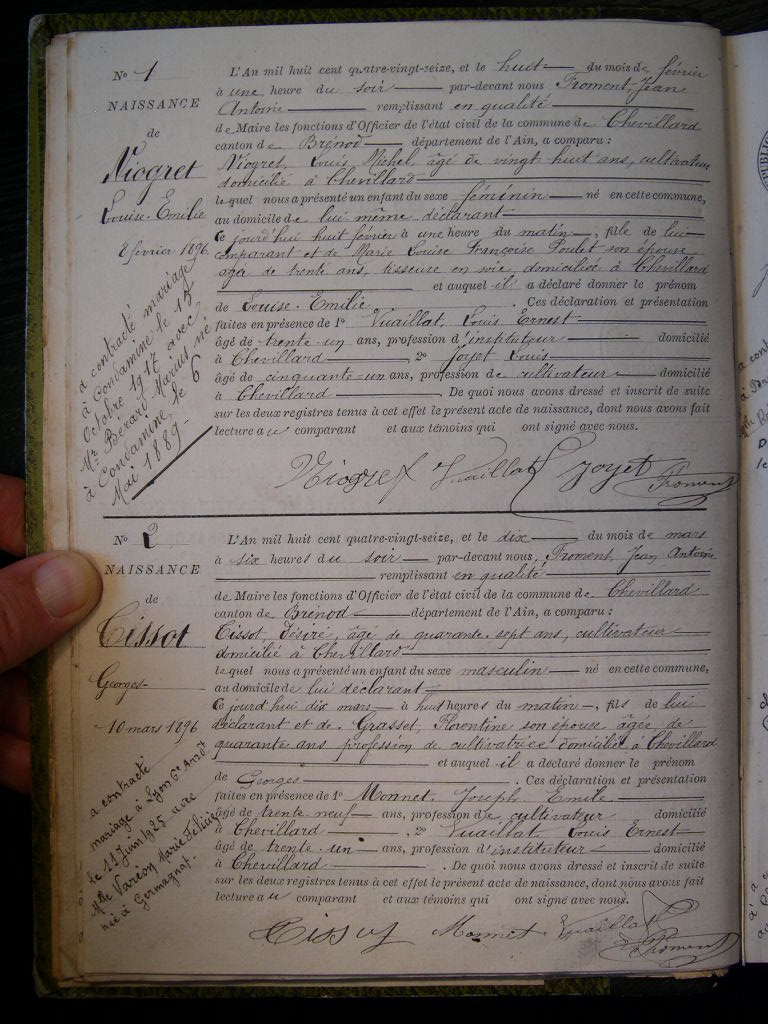 N° 1
NAISSANCE
de
Niogret
Louise-Emilie
8 février 1896
a contracté mariage
à Condamine le 15
Octobre 1917 avec
Mr Bérard Marius né
à Condamine le 6
Mai 1889.
L'An mil huit cent quatre-vingt-seize, et le huit du mois de février
à une heure du soir par-devant nous Froment Jean
Antoine remplissant en qualité
de Maire les fonctions d'Officier de l'état civil de la commune de Chevillard
canton de Brénod département de l'Ain, a comparu :
Niogret, Louis Michel, âgé de vingt huit ans, cultivateur
domicilié à Chevillard
lequel nous a présenté un enfant du sexe féminin né en cette commune,
au domicile de lui même déclarant
Ce jourd'hui huit février à une heure du matin, fille de lui
comparant et de Marie Louise Françoise Poulet son épouse
âgée de trente ans, tisseuse en soie, domiciliée à Chevillard
et auquel il a déclaré donner le prénom
de Louise-Emilie. Ces déclaration et présentation
faites en présence de 1° Vuaillat, Louis Ernest
âgé de trente-un ans, profession d'instituteur domicilié
à Chevillard, 2° Joyet Louis
âgé de cinquante-un ans, profession de cultivateur domicilié
à Chevillard. De quoi nous avons dressé et inscrit de suite
sur les deux registres tenus à cet effet le présent acte de naissance, dont nous avons fait
lecture au comparant et aux témoins qui ont signé avec nous.
Niogret Vuaillat Joyet Froment
N° 2
NAISSANCE
de
Cissot
Georges
10 mars 1896
a contracté
mariage à Lyon 6e Arrdt
le 11 Juin 1925 avec
Mlle Varéon Marie Félicie
née à Germagnat.
L'An mil huit cent quatre-vingt-seize, et le dix du mois de mars
à six heures du soir par-devant nous, Froment, Jean Antoine
remplissant en qualité
de Maire les fonctions d'Officier de l'état civil de la commune de Chevillard
canton de Brénod département de l'Ain, a comparu :
Cissot, Désiré, âgé de quarante-sept ans, cultivateur
domicilié à Chevillard
lequel nous a présenté un enfant du sexe masculin né en cette commune,
au domicile de lui déclarant
Ce jourd'hui dix mars à huit heures du matin, fils de lui
déclarant et de Grasset, Florentine son épouse âgée de
quarante ans profession de cultivatrice domiciliée à Chevillard
et auquel il a déclaré donner le prénom
de Georges. Ces déclaration et présentation
faites en présence de 1° Monnet, Joseph Emile
âgé de trente neuf ans, profession de cultivateur domicilié
à Chevillard, 2° Vuaillat Louis Ernest
âgé de trente-un ans, profession d'instituteur domicilié
à Chevillard. De quoi nous avons dressé et inscrit de suite
sur les deux registres tenus à cet effet le présent acte de naissance, dont nous avons fait
lecture au comparant et aux témoins qui ont signé avec nous.
Cissot Monnet Vuaillat Froment